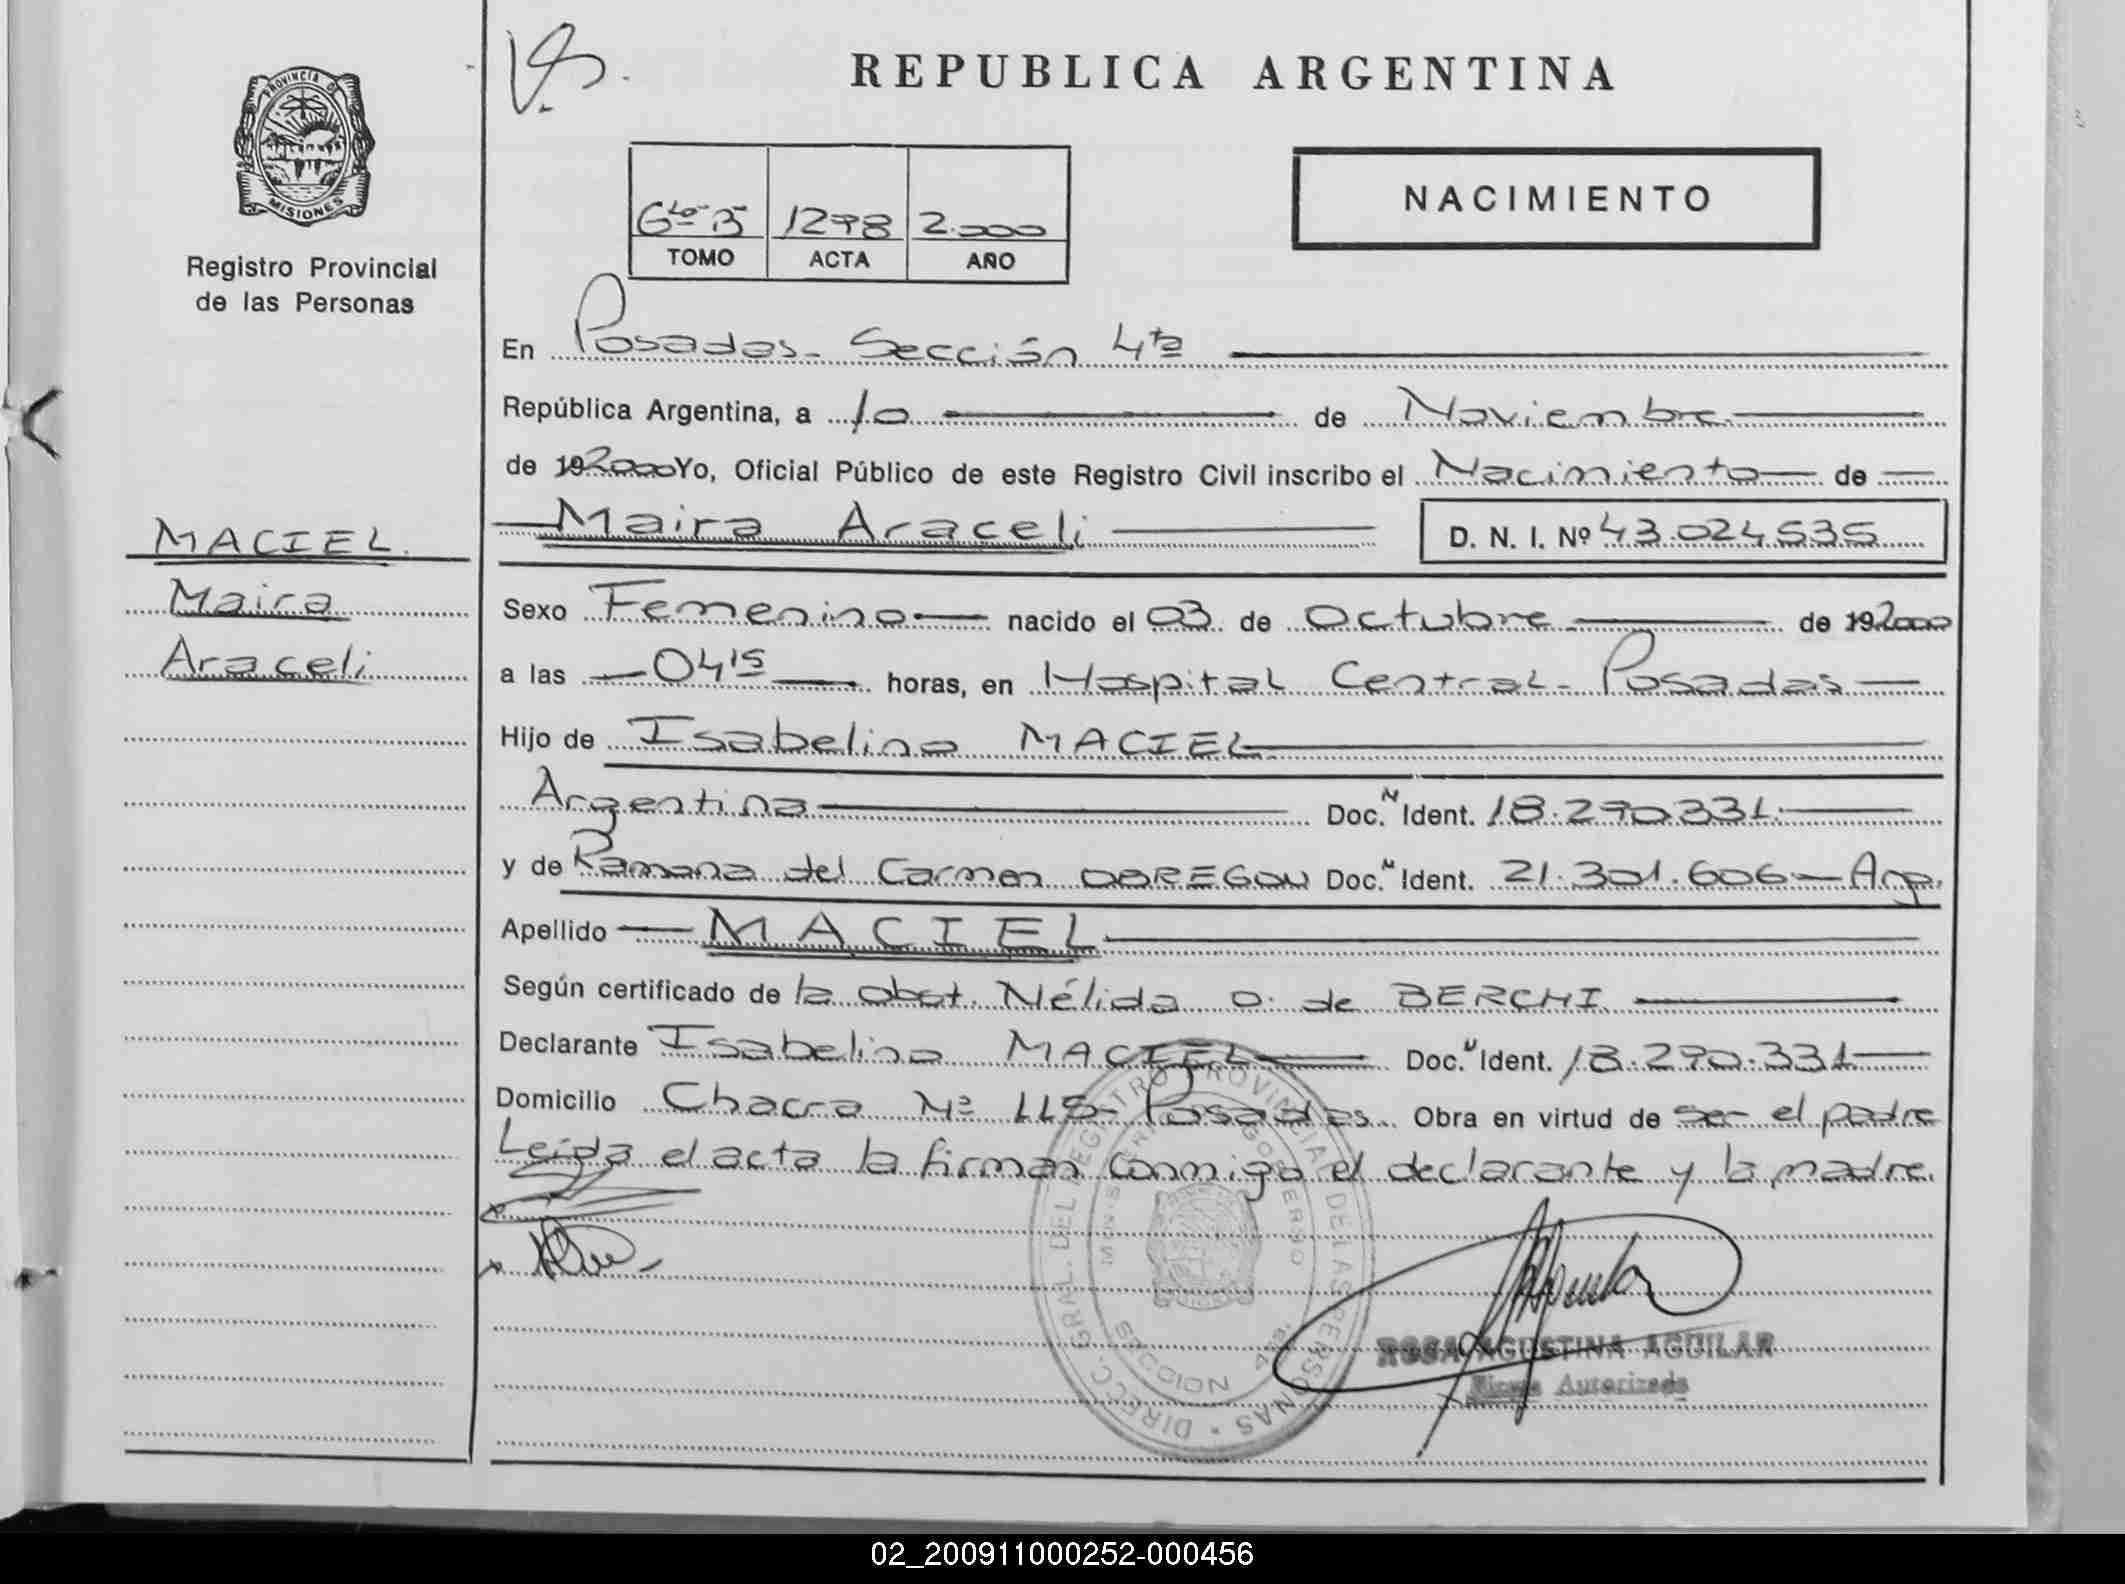 REPUBLICA ARGENTINA
PROVINCIA DE
MISIONES
Registro Provincial
de las Personas
NACIMIENTO
6to B 1298 2.000
TOMO ACTA AÑO
En Posadas - Sección 4ta
República Argentina, a 10 de Noviembre
de 192000 Yo, Oficial Público de este Registro Civil inscribo el Nacimiento de
Maira Araceli D. N. I. Nº 43.024535
MACIEL.
Maira
Araceli
Sexo Femenino nacido el 03 de Octubre de 192000
a las 04 15 horas, en Hospital Central - Posadas
Hijo de Isabelino MACIEL
Argentina Doc. N Ident. 18.290331
y de Ramona del Carmen OBREGON Doc. N Ident. 21.301.606 - Arg.
Apellido MACIEL
Según certificado de la obst. Nélida O. de BERCHI
Declarante Isabelino MACIEL Doc. N Ident. 18.290.331
Domicilio Chacra Nº 115 - Posadas Obra en virtud de ser el padre
Leída el acta la firman conmigo el declarante y la madre.
DIRECC. GRAL. DEL REGISTRO PROVINCIAL DE LAS PERSONAS
MINISTERIO GOBIERNO
SECCION 4ta.
ROSA AGUSTINA AGUILAR
Firma Autorizada
02_200911000252-000456